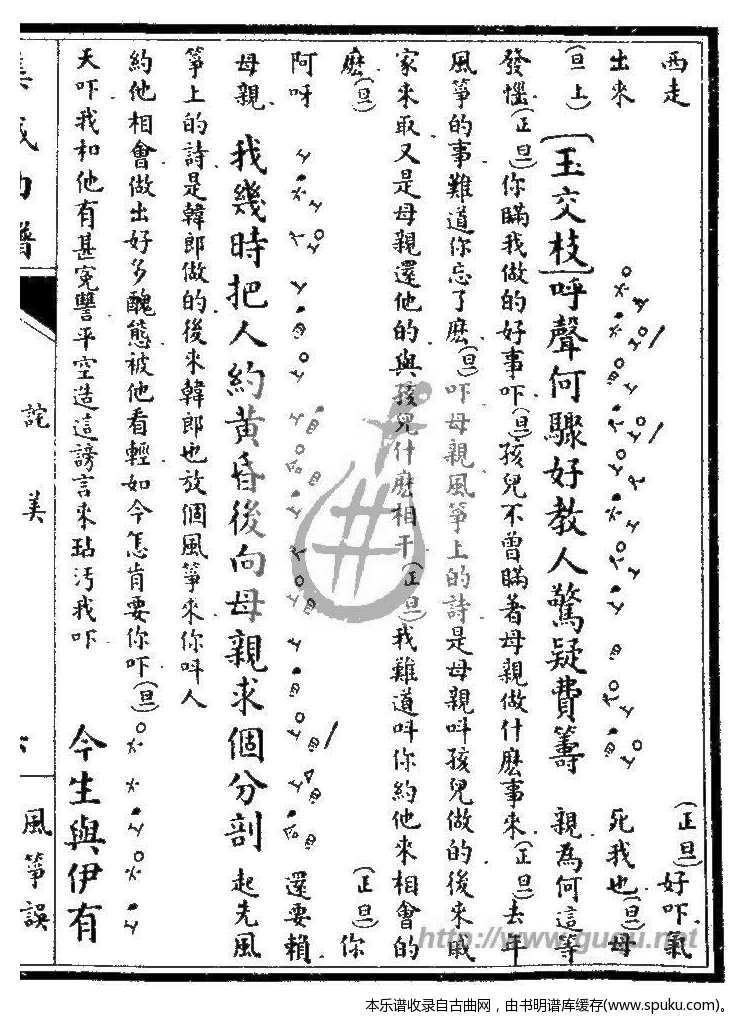 西走 (正旦)好吓氣
出來 死我也(旦)母
(旦上)【玉交枝】呼聲何驟好教人驚疑費籌 親為何這等
發惱(正旦)你瞞我做的好事吓(旦)孩兒不曾瞞著母親做什麽事來(正旦)去年
風箏的事難道你忘了麽(旦)吓母親風箏上的詩是母親叫孩兒做的後來戚
家來取又是母親還他的與孩兒什麽相干(正旦)我難道叫你約他來相會的
麽(旦) (正旦)你
阿呀 還要賴
母親 我幾時把人約黃昏後向母親求個分剖 起先風
箏上的詩是韓郎做的後來韓郎也放個風箏來你叫人
約他相會做出好多醜態被他看輕如今怎肯要你吓(旦)
天吓我和他有甚寃讐平空造這謗言來玷汚我吓 今生與伊有
集成曲譜 詫美 風箏誤
http://www.guqu.net
本乐谱收录自古曲网，由书明谱库缓存(www.spuku.com)。